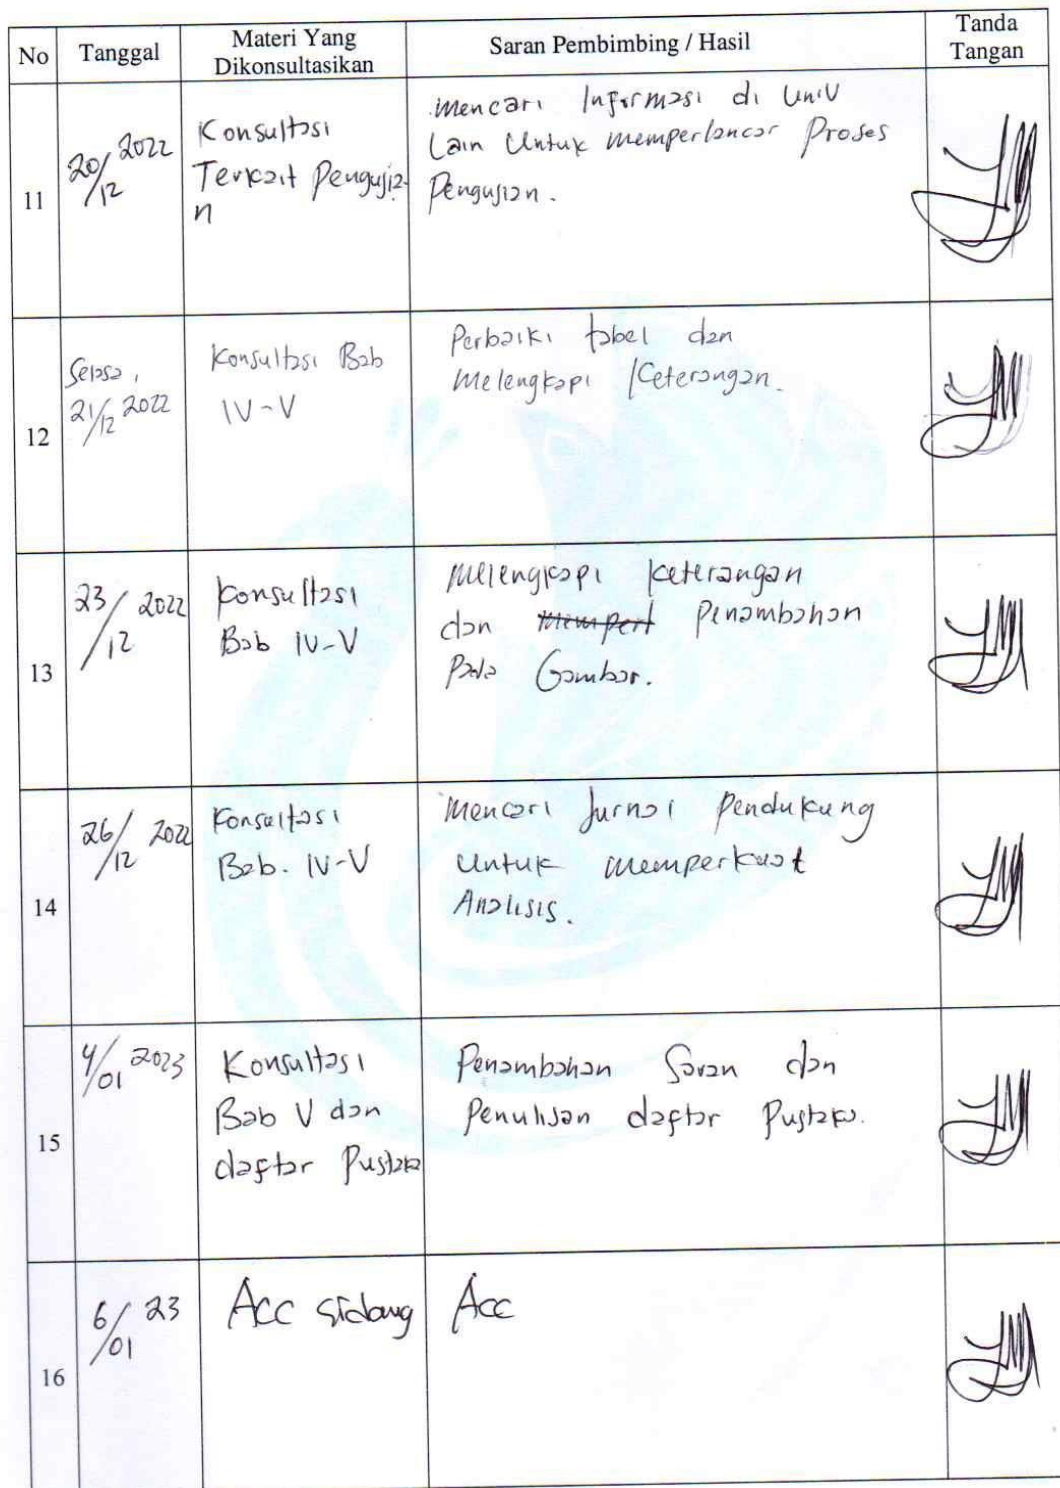 No Tanggal Materi Yang Dikonsultasikan Saran Pembimbing / Hasil Tanda Tangan
11
20/12 2022
Konsultasi
Terkait Pengujia
n
mencari Informasi di Univ
Lain Untuk memperlancar Proses
Pengujian.
12
Selasa,
21/12 2022
Konsultasi Bab
IV-V
Perbaiki tabel dan
Melengkapi Keterangan.
13
23/12 2022
Konsultasi
Bab IV-V
Melengkapi keterangan
dan Mempert Penambahan
Pada Gambar.
14
26/12 2022
Konsultasi
Bab. IV-V
Mencari Jurnal Pendukung
Untuk memperkuat
Analisis.
15
4/01 2023
Konsultasi
Bab V dan
daftar Pustaka
Penambahan Saran dan
Penulisan daftar Pustaka.
16
6/01 23
Acc sidang
Acc